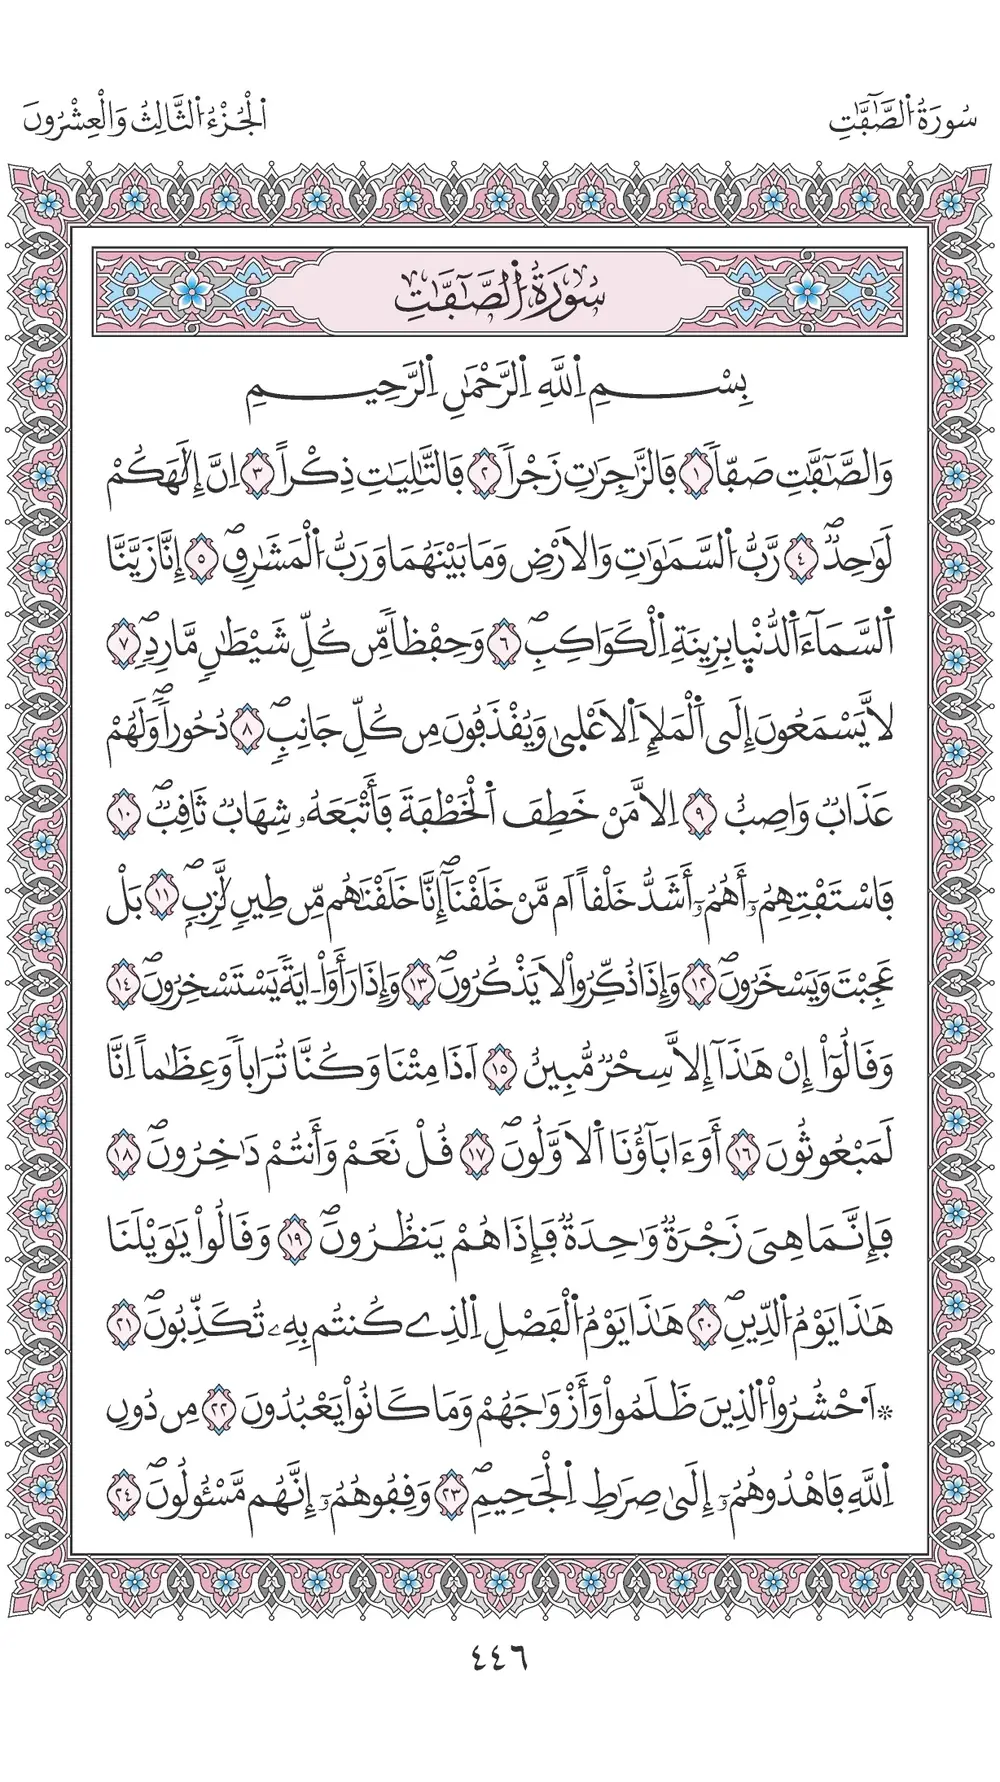 سُورَةُ اُ۬لصَّٰٓفَّٰتِ
اَ۬لْجُزْءُ اُ۬لثَّالِثُ وَالْعِشْرُونَ
سُورَةُ اُ۬لصَّٰٓفَّٰتِ
بِسْمِ اِ۬للَّهِ اِ۬لرَّحْمَٰنِ اِ۬لرَّحِيمِ
وَالصَّٰٓفَّٰتِ صَفّاٗ ١ فَالزَّٰجِرَٰتِ زَجْراٗ ٢ فَالتَّٰلِيَٰتِ ذِكْراً ٣ اِنَّ إِلَٰهَكُمْ
لَوَٰحِدٞۖ ٤ رَّبُّ اُ۬لسَّمَٰوَٰتِ وَالَارْضِ وَمَا بَيْنَهُمَا وَرَبُّ اُ۬لْمَشَٰرِقِۖ ٥ إِنَّا زَيَّنَّا
اَ۬لسَّمَآءَ اَ۬لدُّنْي۪ا بِزِينَةِ اِ۬لْكَوَاكِبِۖ ٦ وَحِفْظاٗ مِّن كُلِّ شَيْطَٰنٖ مَّارِدٖۖ ٧
لَّا يَسْمَعُونَ إِلَى اَ۬لْمَلَإِ اِ۬لَاعْل۪ىٰ وَيُقْذَفُونَ مِن كُلِّ جَانِبٖۖ ٨ دُحُوراٗۖ وَلَهُمْ
عَذَابٞ وَاصِبٌ ٩ اِلَّا مَنْ خَطِفَ اَ۬لْخَطْفَةَ فَأَتْبَعَهُۥ شِهَابٞ ثَاقِبٞۖ ١٠
فَاسْتَفْتِهِمُۥٓ أَهُمُۥٓ أَشَدُّ خَلْقاً اَم مَّنْ خَلَقْنَآۖ إِنَّا خَلَقْنَٰهُم مِّن طِينٖ لَّٰزِبِۢۖ ١١ بَلْ
عَجِبْتَ وَيَسْخَرُونَۖ ١٢ وَإِذَا ذُكِّرُواْ لَا يَذْكُرُونَۖ ١٣ وَإِذَا رَأَوَاْ ءَايَةٗ يَسْتَسْخِرُونَۖ ١٤
وَقَالُوٓاْ إِنْ هَٰذَآ إِلَّا سِحْرٞ مُّبِينٌ ١٥ اَ۟ذَا مِتْنَا وَكُنَّا تُرَاباٗ وَعِظَٰماً اِنَّا
لَمَبْعُوثُونَ ١٦ أَوَءَابَآؤُنَا اَ۬لَاوَّلُونَۖ ١٧ قُلْ نَعَمْ وَأَنتُمْ دَٰخِرُونَۖ ١٨
فَإِنَّمَا هِيَ زَجْرَةٞ وَٰحِدَةٞ فَإِذَا هُمْ يَنظُرُونَۖ ١٩ وَقَالُواْ يَٰوَيْلَنَا
هَٰذَا يَوْمُ اُ۬لدِّينِۖ ٢٠ هَٰذَا يَوْمُ اُ۬لْفَصْلِ اِ۬لذِے كُنتُم بِهِۦ تُكَذِّبُونَۖ ٢١
۞اَ۟حْشُرُواْ اُ۬لذِينَ ظَلَمُواْ وَأَزْوَٰجَهُمْ وَمَا كَانُواْ يَعْبُدُونَ ٢٢ مِن دُونِ
اِ۬للَّهِ فَاهْدُوهُمُۥٓ إِلَىٰ صِرَٰطِ اِ۬لْجَحِيمِۖ ٢٣ وَقِفُوهُمُۥٓ إِنَّهُم مَّسْـُٔولُونَۖ ٢٤
٤٤٦